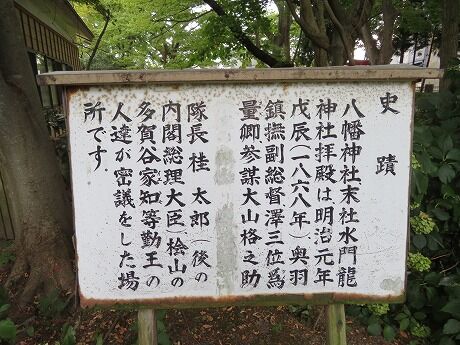 史蹟
八幡神社末社水門龍
神社拝殿は明治元年
戊辰(一八六八年)奥羽
鎮撫副総督澤三位爲
量卿参謀大山格之助
隊長桂太郎(後の
内閣総理大臣)桧山の
多賀谷家知等勤王の
人達が密議をした場
所です.